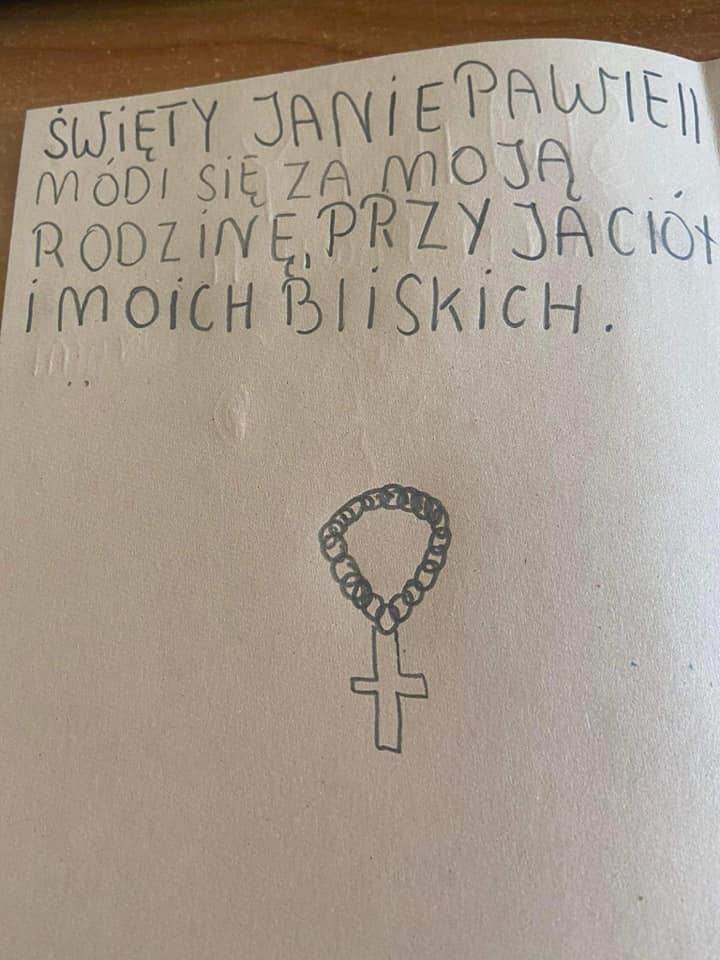 ŚWiĘTY JANiE PAWIE II
MÓDl SiĘ ZA MOJĄ
RODZiNĘ, PRZYJACiÓŁ
i MOiCH BliSKiCH.